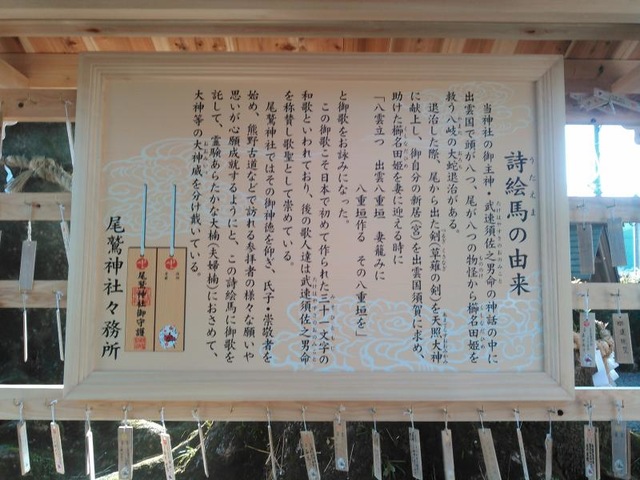 詩絵馬の由来
うたえま
当神社の御主神・武速須佐之男命の神話の中に
たけはやすさのおのみこと
出雲国で頭が八つ、尾が八つの物怪から櫛名田姫を
もののけ
救う八岐の大蛇退治がある。
退治した際、尾から出た剣(草薙の剣)を天照大神
に献上し、御自分の新居(宮)を出雲国須賀に求め、
助けた櫛名田姫を妻に迎える時に
「八雲立つ　出雲八重垣　妻籠みに
八重垣作る　その八重垣を」
と御歌をお詠みになった。
この御歌こそ日本で初めて作られた三十一文字の
和歌といわれており、後の歌人達は武速須佐之男命
を称賛し歌聖として崇めている。
尾鷲神社ではその御神徳を仰ぎ、氏子・崇敬者を
始め、熊野古道などで訪れる参拝者の様々な願いや
思いが心願成就するようにと、この詩絵馬に御歌を
託して、霊験あらたかな大楠(夫婦楠)におさめて、
大神等の大神威を分け戴いている。
尾鷲神社御守護
尾鷲神社々務所